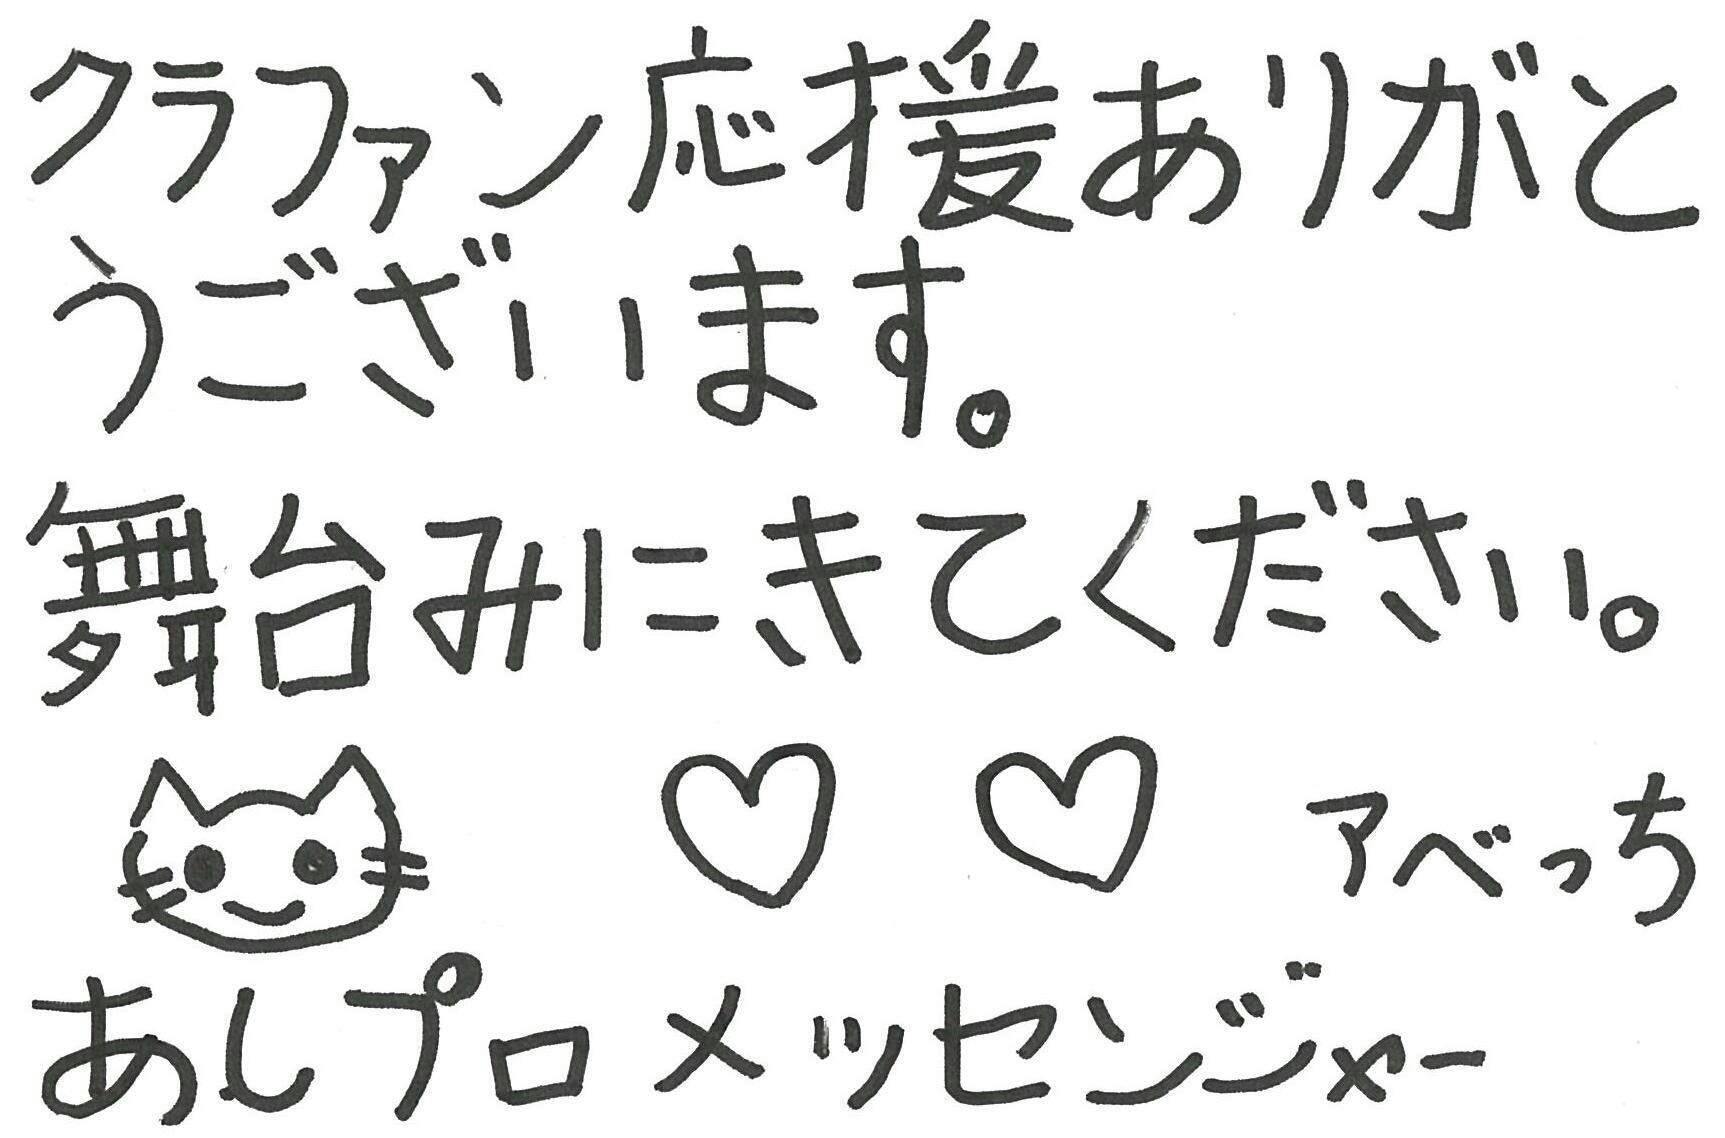 クラファン応援ありがと
うございます。
舞台みにきてください。
アベっち
あしプロメッセンジャー